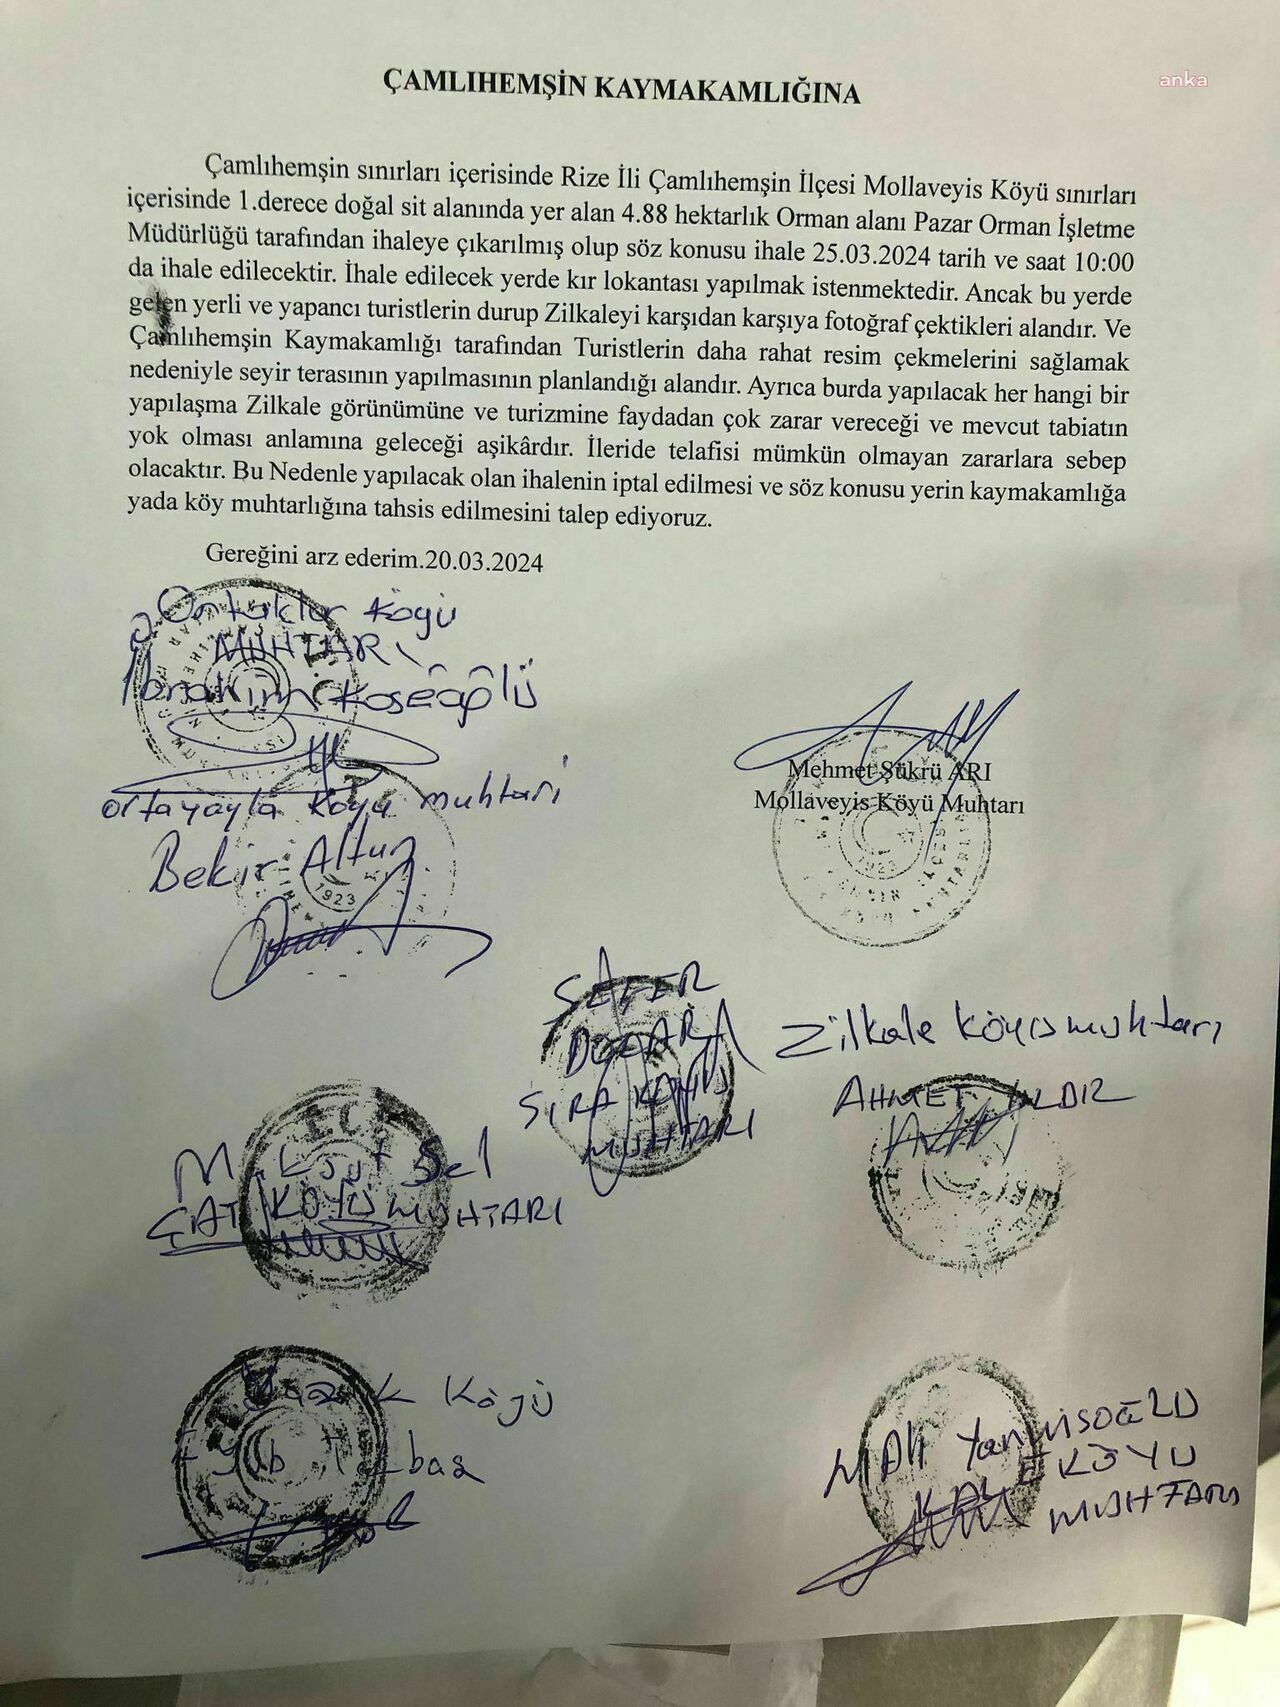 anka
ÇAMLIHEMŞİN KAYMAKAMLIĞINA
Çamlıhemşin sınırları içerisinde Rize İli Çamlıhemşin İlçesi Mollaveyis Köyü sınırları
içerisinde 1.derece doğal sit alanında yer alan 4.88 hektarlık Orman alanı Pazar Orman İşletme
Müdürlüğü tarafından ihaleye çıkarılmış olup söz konusu ihale 25.03.2024 tarih ve saat 10:00
da ihale edilecektir. İhale edilecek yerde kır lokantası yapılmak istenmektedir. Ancak bu yerde
gelen yerli ve yapancı turistlerin durup Zilkaleyi karşıdan karşıya fotoğraf çektikleri alandır. Ve
Çamlıhemşin Kaymakamlığı tarafından Turistlerin daha rahat resim çekmelerini sağlamak
nedeniyle seyir terasının yapılmasının planlandığı alandır. Ayrıca burda yapılacak her hangi bir
yapılaşma Zilkale görünümüne ve turizmine faydadan çok zarar vereceği ve mevcut tabiatın
yok olması anlamına geleceği aşikârdır. İleride telafisi mümkün olmayan zararlara sebep
olacaktır. Bu Nedenle yapılacak olan ihalenin iptal edilmesi ve söz konusu yerin kaymakamlığa
yada köy muhtarlığına tahsis edilmesini talep ediyoruz.
Gereğini arz ederim.20.03.2024
Köyü
MUHTARI
İbrahim
Mehmet Şükrü ARI
Mollaveyis Köyü Muhtarı
ortayayla köyü muhtari
Bekir Altun
1923
1923
SEFER
MUHTARI
Zilkale köyü muhtarı
AHMET YILDIZ
ÇAT KÖYÜ MUHTARI
Köyü
MAli
KALE KÖYÜ
MUHTARI